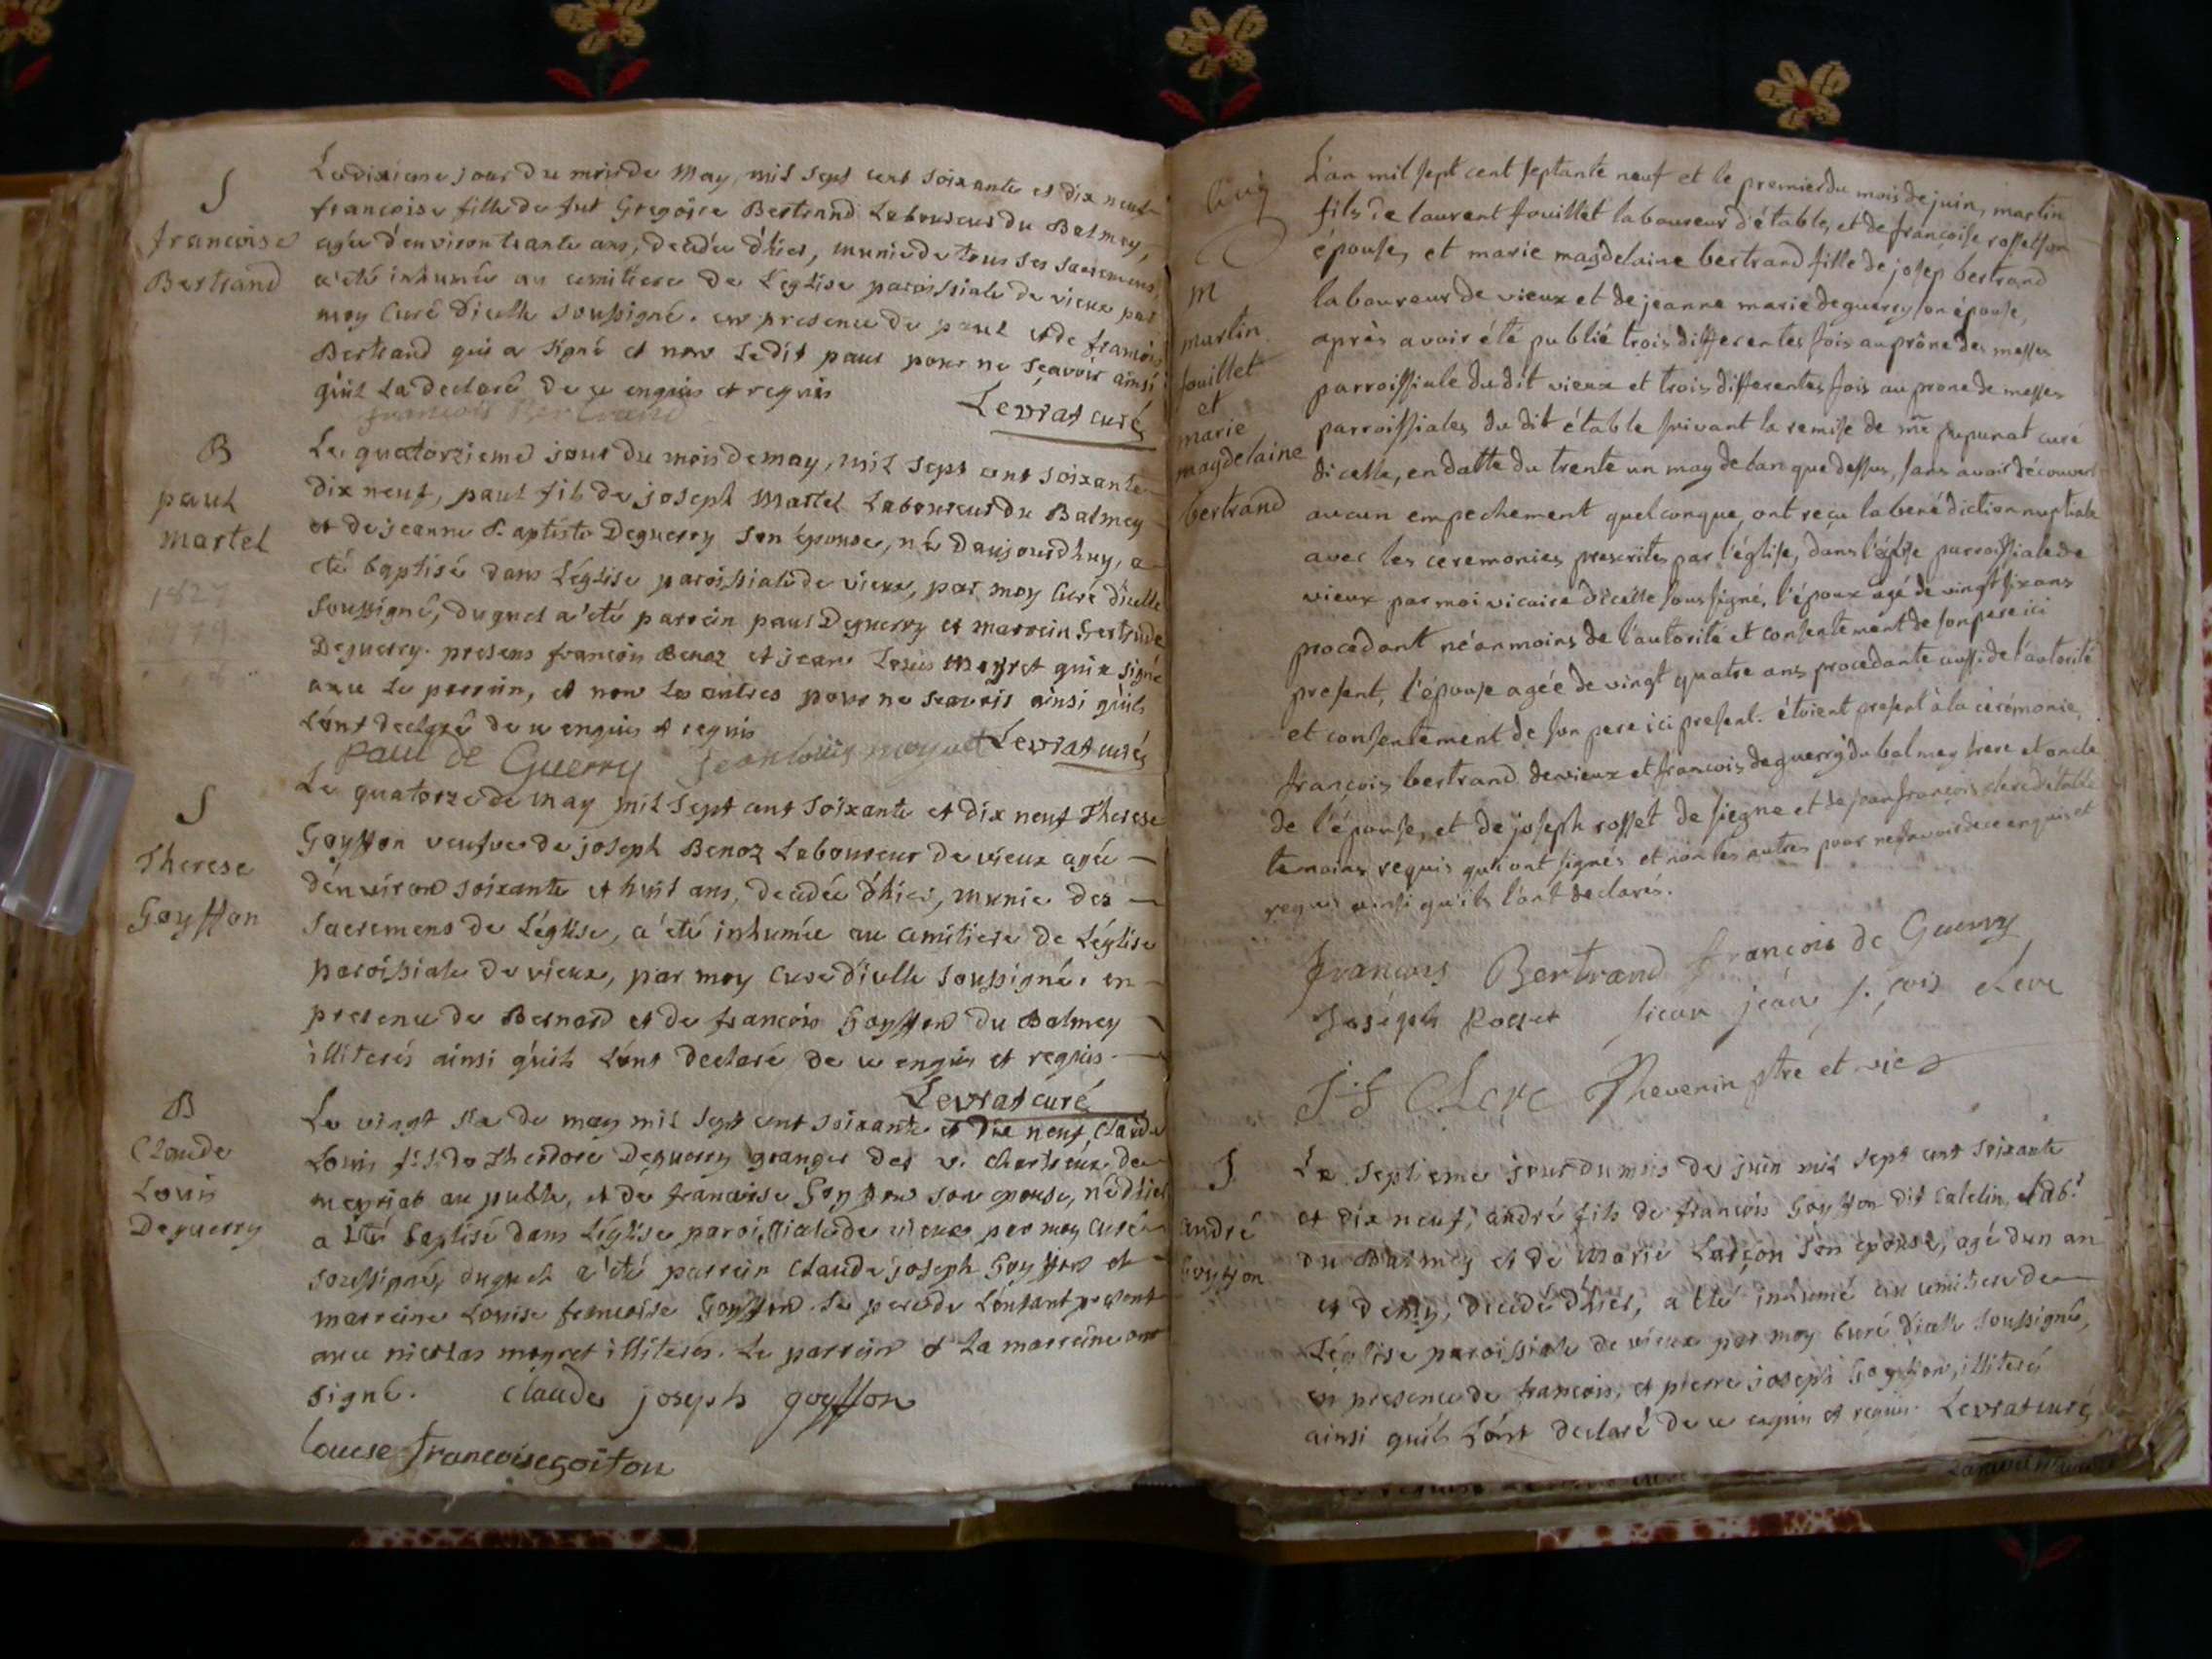 S
francoise
Bertrand
Le dixieme jour du mois de May, mil sept cent soixante et dix neuf
francoise fille de fut Gregoire Bertrand Laboureur du Balmey,
agée d'environ trante ans, decedée d'hier, munie de tous ses sacremens,
a eté inhumée au cemitiere de Leglise paroissiale de vieux par
moy Curé d'icelle soussigné. en presence de paul et de francois
Bertrand qui a signé et non Ledit paul pour ne sçavoir ainsi
qu'il La declaré de ce enquis et requis
francois Bertrand
Levrat curé
B
paul
Martel
Le quatorzieme jour du mois de may, mil sept cent soixante
dix neuf, paul fils de joseph Martel Laboureur du Balmey
et de jeanne B.aptiste Deguerry son épouse, né d'aujourdhuy, a
eté baptisé dans Léglise paroissiale de vieux, par moy Curé d'icelle
soussigné, duquel a'eté parrein paul Deguerry et marrein Gertrude
Deguerry. presens francois Benoz et jean Louis Moyret qui a signé
avec Le parrein, et non Les autres pour ne sçavoir ainsi qu'ils
L'ont declaré de ce enquis et requis
paul de Guerry jean louis moyret Levrat curé
S
Therese
Goyffon
Le quatorze de may mil sept cent soixante et dix neuf Therese
Goyffon veufve de joseph Benoz Laboureur de vieux agée
d'environ soixante et huit ans, decedée d'hier, munie des
sacremens de Léglise, a'eté inhumée au cemitiere de Léglise
paroissiale de vieux, par moy Curé d'icelle soussigné. en
presence de Bernard et de francois Goyffon du Balmey
illiterés ainsi qu'ils L'ont declaré de ce enquis et requis.
Levrat curé
B
Claude
Louis
Deguerry
Le vingt six de may mil sept cent soixante et dix neuf, Claude
Louis fils de Theodore Deguerry granger des v. chartreux de
meyriat au, et de francoise Goyffon son epouse, né d'hier
a été baptisé dans Léglise paroissiale de vieux par moy Curé
soussigné, duquel a'eté parrein Claude joseph Goyffon et
marreine Louise francoise Goyffon. Le pere de L'enfant present
avec nicolas moyret illiterés. Le parrein et La marreine ont
signé. claude joseph goyffon
louise francoise goifon
M
martin
fouillet
et
marie
magdelaine
bertrand
L'an mil sept cent septante neuf et le premier du mois de juin, martin
fils de laurent fouillet laboureur d'étable, et de françoise rosset son
épouse, et marie magdelaine bertrand fille de josep bertrand
laboureur de vieux et de jeanne marie deguerry son épouse,
après avoir été publié trois differentes fois au prône des messes
parroissiale du dit vieux et trois differentes fois au prone de messes
parroissiales du dit étable suivant la remise de mre pupunat curé
dicelle, en datte du trente un may de lan que dessus, sans avoir découvert
aucun empechement quelconque, ont reçu la benédiction nuptiale
avec les ceremonies prescrites par l'église, dans l'église parroissiale de
vieux par moi vicaire dicelle soussigné, l'époux agé de vingt six ans
procédant néanmoins de l'autorité et consentement de son pere ici
present, l'épouse agée de vingt quatre ans procedante aussi de l'autorité
et consentement de son pere ici present. étoient present à la cérémonie,
françois bertrand de vieux et francois deguerry du balmey frere et oncle
de l'épouse, et de joseph rosset de siegne et de jean françois clerc d'étable
temoins requis qui ont signés et non les autres pour ne savoir de ce enquis et
requis ainsi qu'ils l'ont declarés.
francois Bertrand françois de Guerry
Joseph Rosset
J.f Clerc Thevenin ptre et vic
S
andré
Goyffon
Le septieme jour du mois de juin mil sept cent soixante
et dix neuf, andré fils de francois Goyffon dit Catelin, Lab.r
du Balmey et de Marie Lançon son épouse, agé d'un an
et demy, decedé d'hier, a été inhumé au cemitiere de
Léglise paroissiale de vieux par moy Curé d'icelle soussigné,
en presence de francois, et pierre joseph Goyffon, illiterés
ainsi qu'ils L'ont declaré de ce enquis et requis. Levrat curé